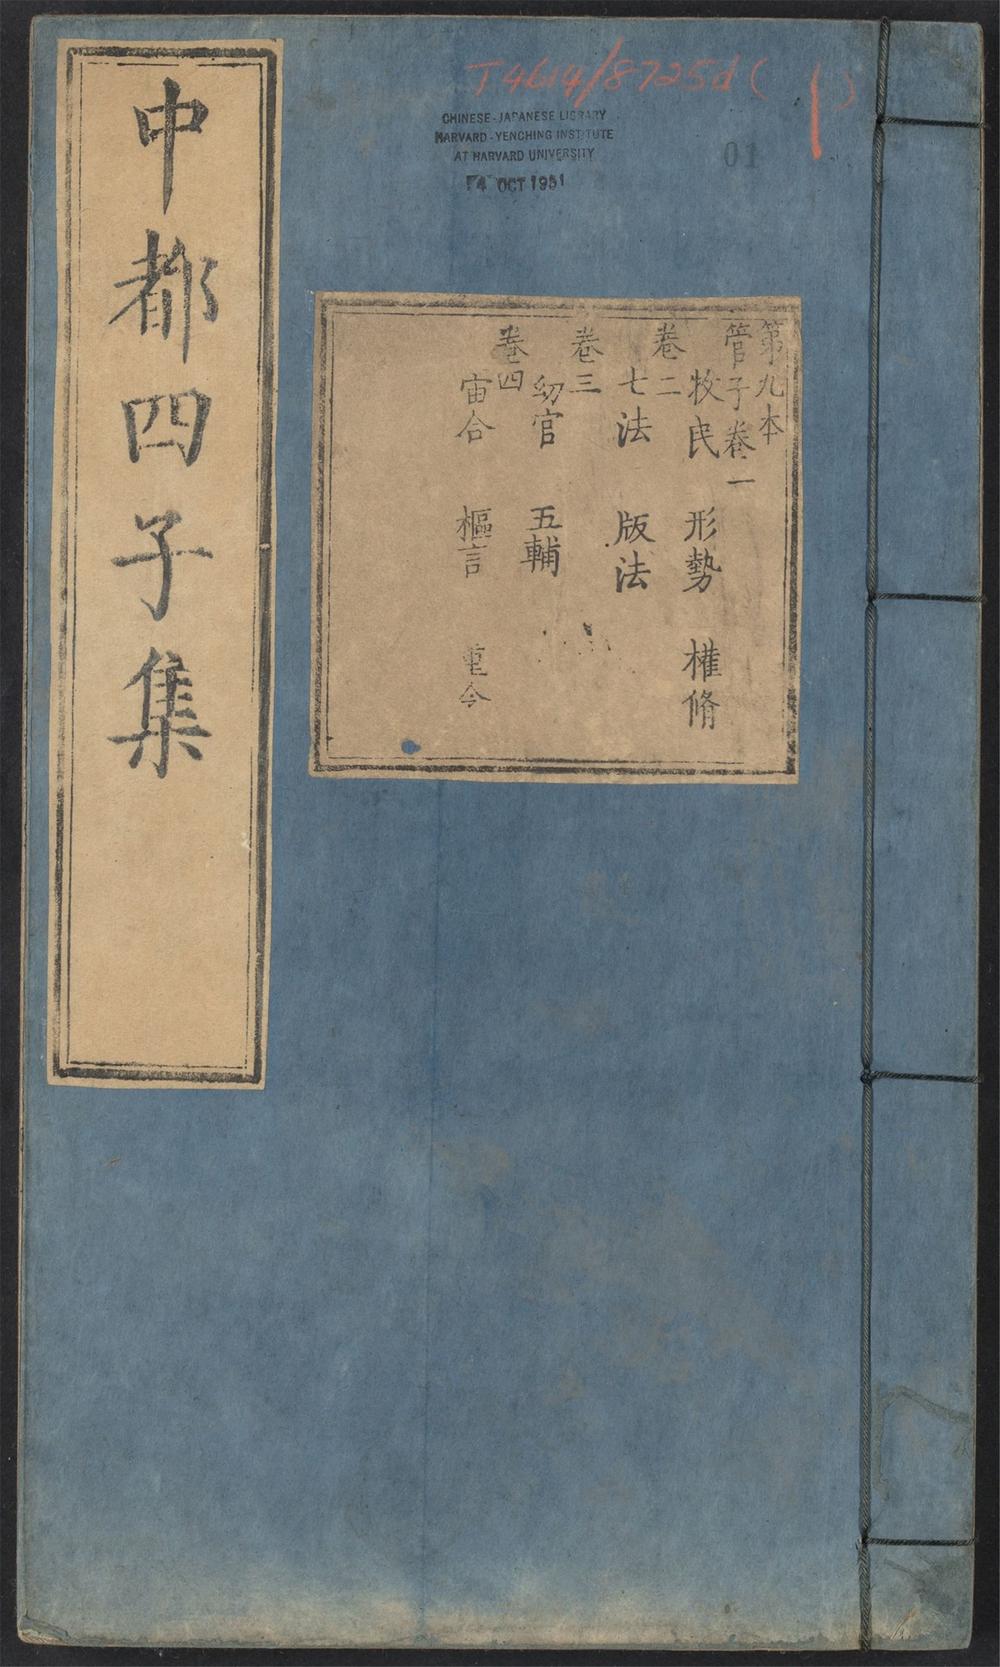 T4614/8725d (1)
CHINESE-JAPANESE LIBRARY
HARVARD-YENCHING INSTITUTE
AT HARVARD UNIVERSITY
14 OCT 1951
01
中都四子集
第九本
管子卷一
牧民 形勢 權脩
卷二
七法 版法
卷三
幼官 五輔
卷四
宙合 樞言 重令